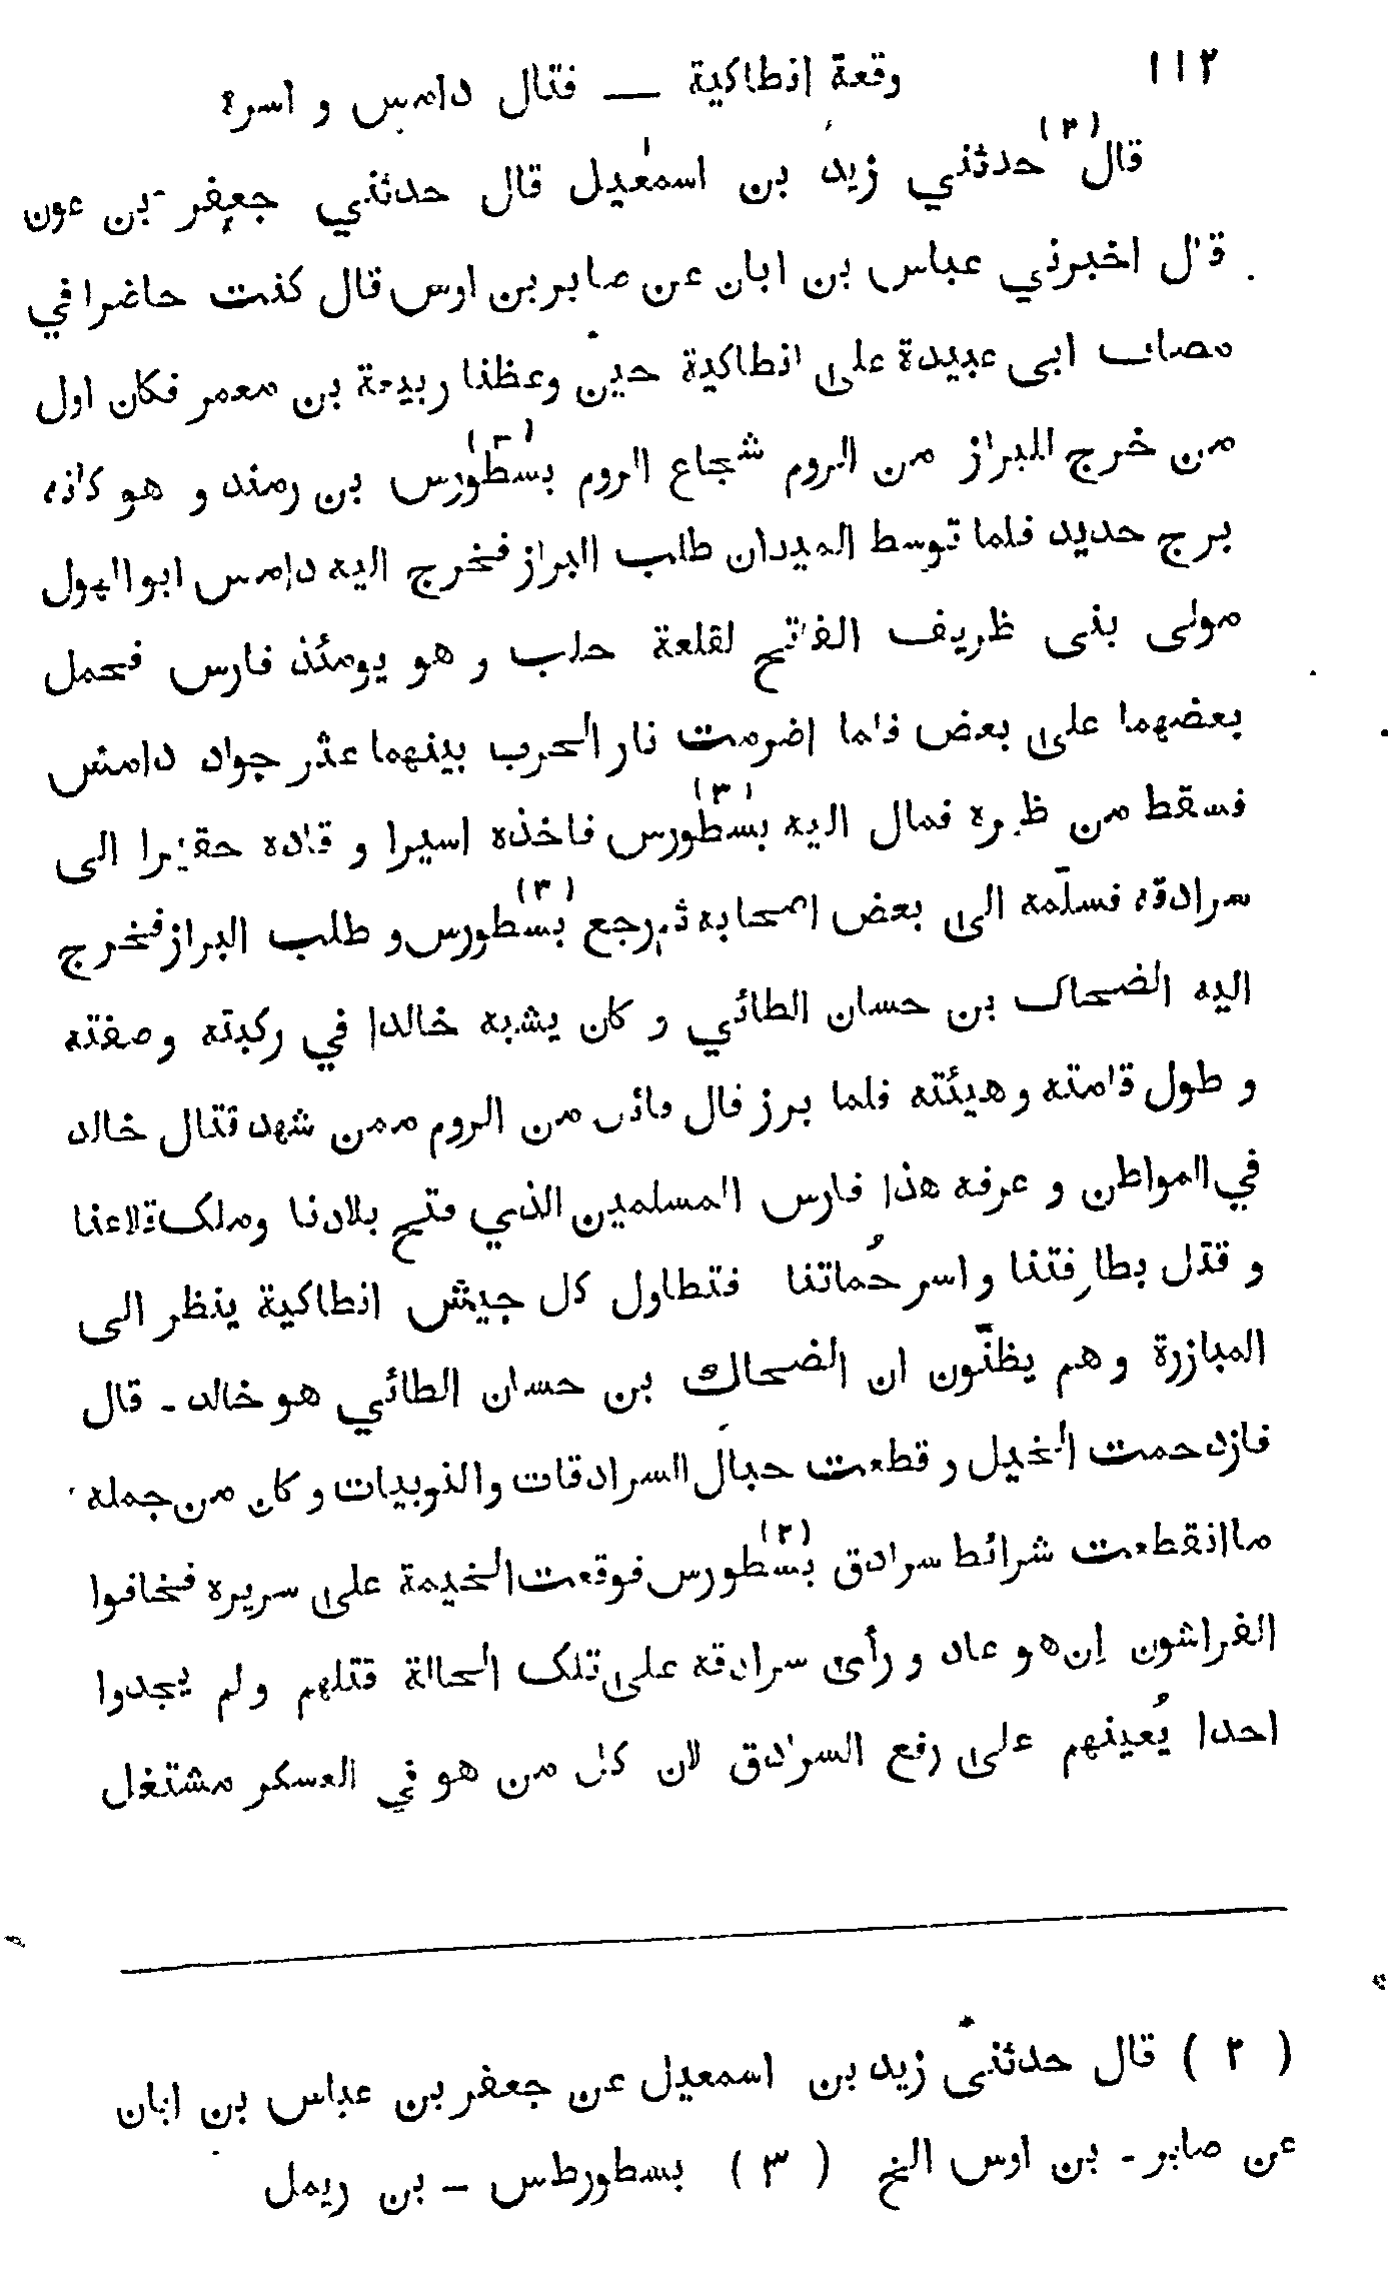 ١١٢ وقعة انطاكية — قتال دامس و اسرة
قال (٢) حدثني زيد بن اسمعيل قال حدثني جعفر بن عون
قال اخبرني عباس بن ابان عن صابر بن اوس قال كنت حاضرا في
مصاف ابى عبيدة على انطاكية حين وعظنا ربيعة بن معمر فكان اول
من خرج للبراز من الروم شجاع الروم بسطورس (٣) بن رمند و هو كانه
برج حديد فلما توسط الميدان طلب البراز فخرج اليه دامس ابو الهول
مولى بنى ظريف الفاتح لقلعة حلب و هو يومئذ فارس فحمل
بعضهما على بعض فلما اضرمت نار الحرب بينهما عثر جواد دامس
فسقط من ظهره فمال اليه بسطورس (٣) فاخذه اسيرا و قاده حقيرا الى
سرادقه فسلّمه الى بعض اصحابه ثم رجع بسطورس (٣) و طلب البراز فخرج
اليه الضحاك بن حسان الطائي و كان يشبه خالدا في ركبته و صفته
و طول قامته و هيئته فلما برز قال قائل من الروم ممن شهد قتال خالد
في المواطن و عرفه هذا فارس المسلمين الذي فتح بلادنا وملک قلاعنا
و قتل بطارقتنا و اسر حُماتنا فتطاول كل جيش انطاكية ينظر الى
المبازرة و هم يظنّون ان الضحاك بن حسان الطائي هو خالد - قال
فازدحمت الخيل و قطعت حبال السرادقات والنوبيات و كان من جملة
ما انقطعت شرائط سرادق بسطورس (٢) فوقعت الخيمة على سريره فخافوا
الفراشون إن هو عاد و رأى سرادقه على تلک الحالة قتلهم و لم يجدوا
احدا يُعينهم على رفع السرادق لان كل من هو في العسكر مشتغل
( ٢ ) قال حدثنى زيد بن اسمعيل عن جعفر بن عباس بن ابان
عن صابر - بن اوس الخ ( ٣ ) بسطورطس - بن ريمل